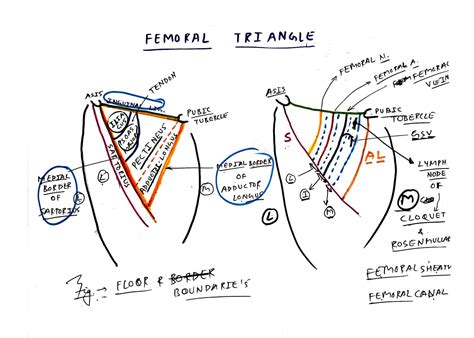 FEMORAL TRIANGLE
TENDON
ASIS
INGUINAL LIG.
PUBIC
TUBERCLE
ILIA
CUS
PSOAS
MAJOR
PECTINEUS
ADDUCTOR LONGUS
SARTORIUS
MEDIAL
BORDER
OF
SARTORIUS
L
M
MEDIAL BORDER
OF
ADDUCTOR
LONGUS
Fig → FLOOR & BORDER
BOUNDARIE'S
FEMORAL N.
FEMORAL A.
FEMORAL
VEIN
ASIS
PUBIC
TUBERCLE
GSV
S
AL
L
I
M
L
LYMPH
NODE
OF
M
CLOQUET
&
ROSENMULLAR
FEMORAL SHEATH
FEMORAL CANAL